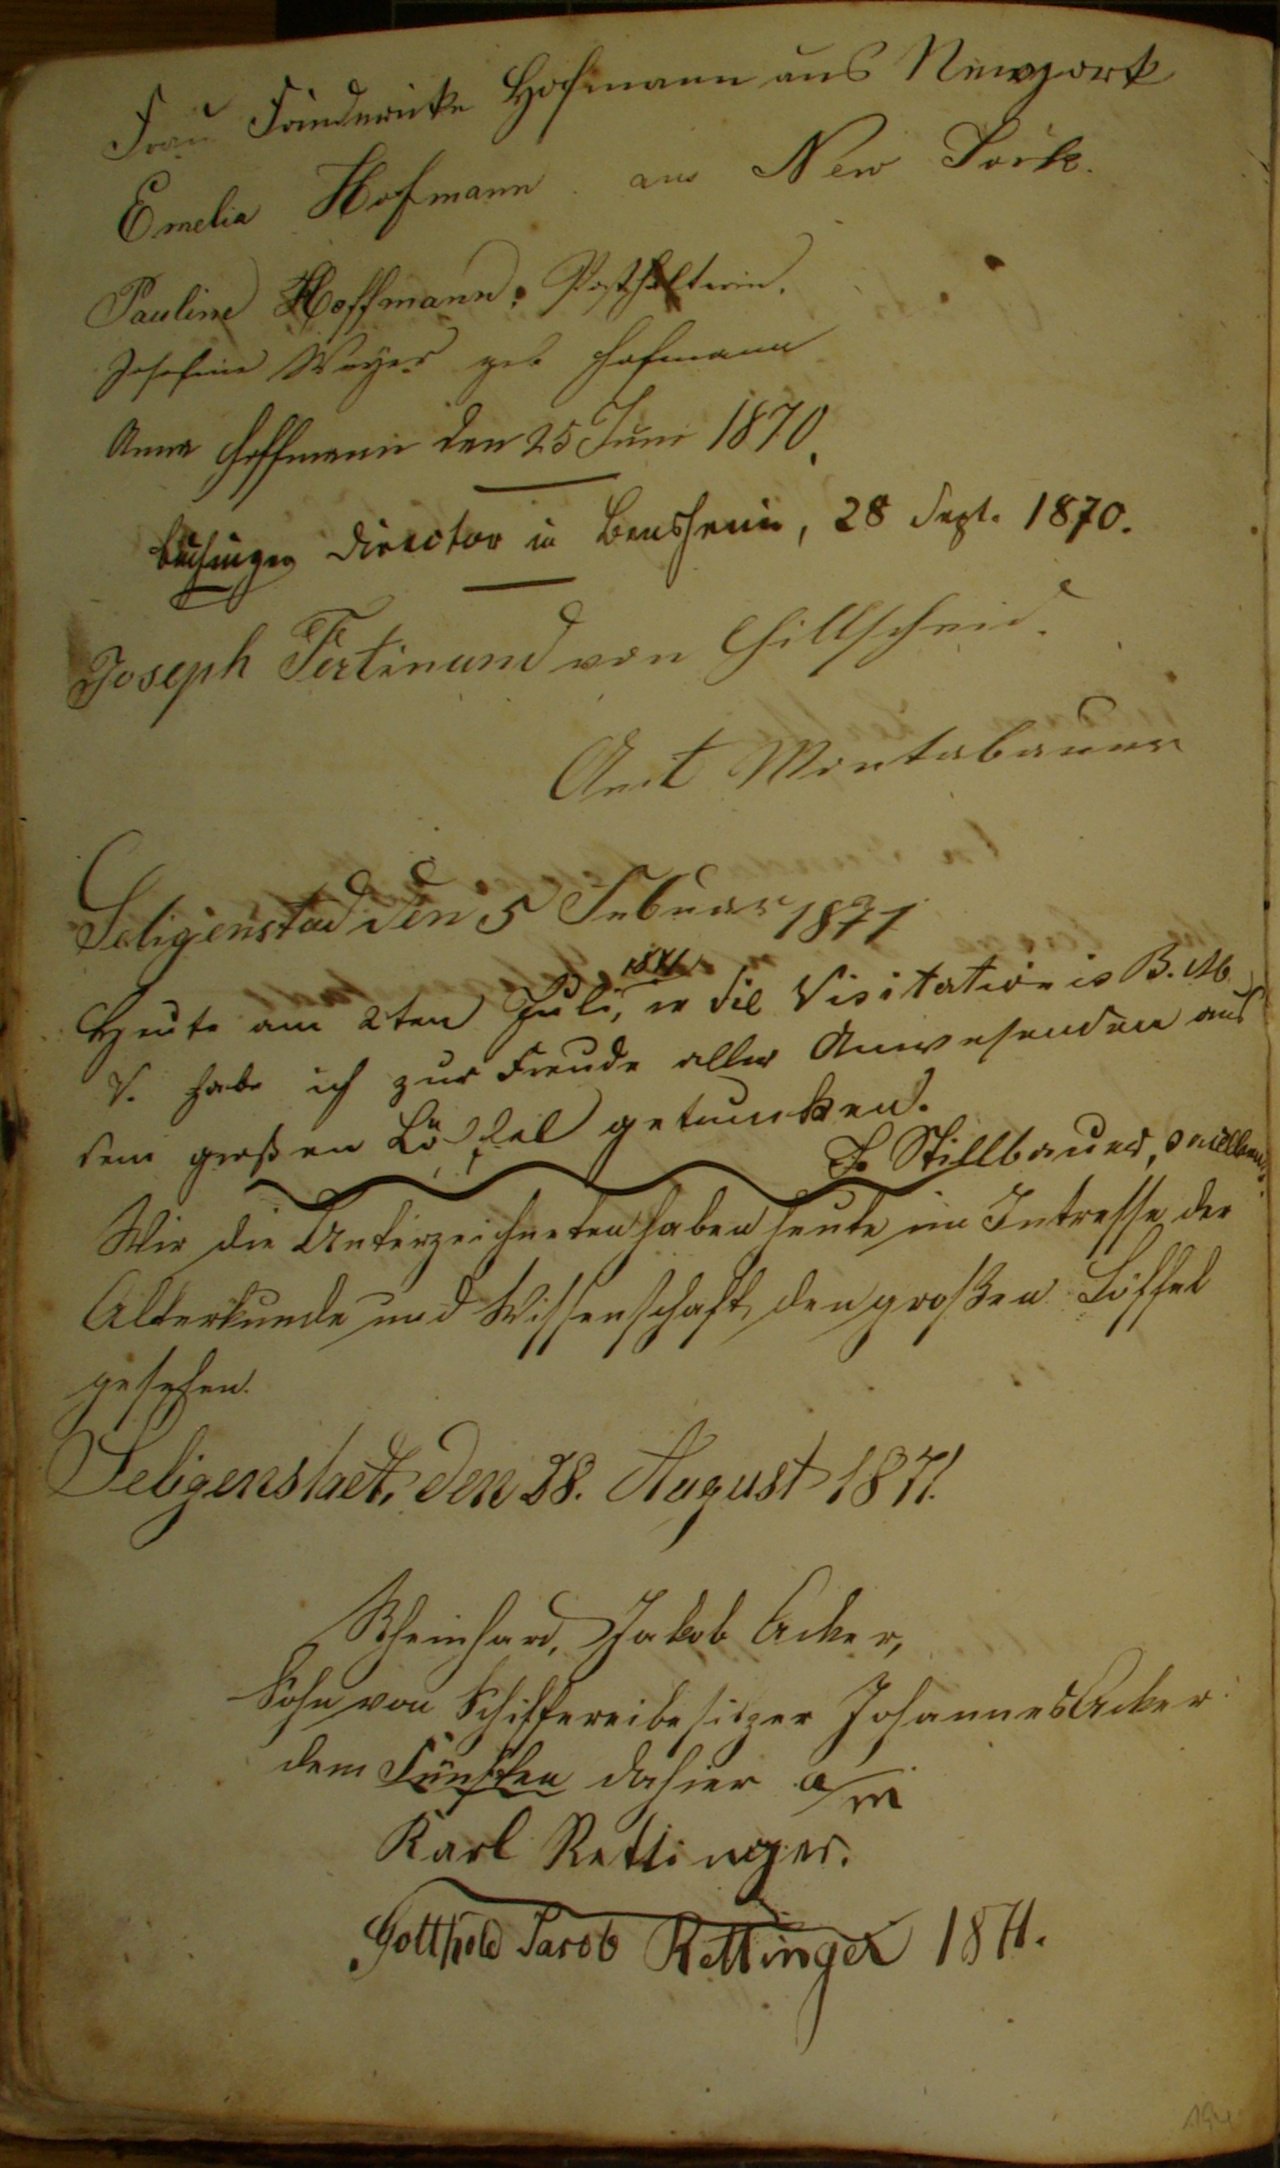 Frau Friedericke Hofmann aus Newyork
Emelia Hofmann aus New York.
Pauline Hoffmann, Posthalterin.
Josefine Weyer geb Hofmann
Anna Hoffmann den 25 Juni 1870.
Director in Bensheim, 28 Sept. 1870.
Joseph Fertinand von Hillscheid.
Amt Montabauer
Seligenstad den 5 Februar 1871
Heute am 2ten Juli, 1871 in die Visitationis B. M.
V. habe ich zur Freude aller Anwesenden aus
dem großen Löffel getrunken.
Stillbauer,
Wir die Unterzeichneten haben heute im Intresse der
Alterkunde und Wissenschaft, den großen Löffel
gesehen.
Seligenstadt, den 28. August 1871.
Rheinhard, Jakob Acker,
Sohn von Schiffereibesitzer Johannes Acker
dem Fünften dahier a/m
Karl Rettinger.
Gotthold Jacob Rettinger 1871.